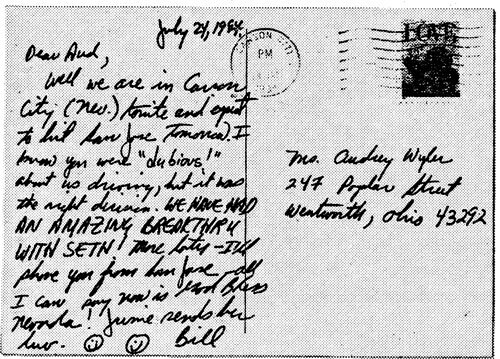 July 24, 1984.
Dear Aud,
Well we are in Carson
City (Nev.) tonite and expect
to hit San Jose tomorrow. I
know you were "dubious!"
about us driving, but it was
the right decision. WE HAVE HAD
AN AMAZING BREAKTHRU
WITH SETH more later - I'll
phone you from San Jose - all
I can say now is God Bless
Nevada! Junie sends her
luv. Bill
CARSON CITY,
PM
LOVE
Ms. Audrey Wyler
247 Poplar Street
Wentworth, Ohio 43292